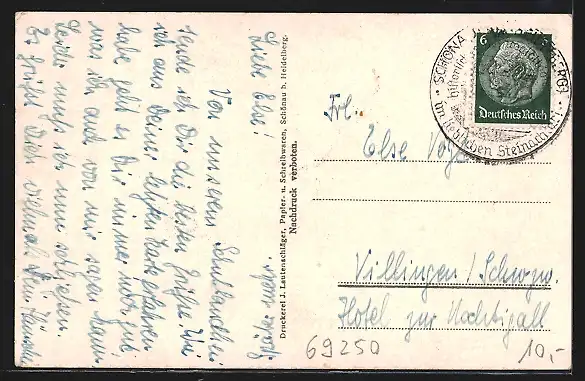 Liebe Else!
Von unserem Schullandheim
sende ich Dir die besten Grüße. Wie
ich aus Deiner letzten Karte erfahren
habe geht es Dir immer noch gut,
was ich auch von mir sagen kann.
Leider muß ich nun schließen.
Es grüßt Dich vielmals
Druckerei J. Lautenschläger, Papier- u. Schreibwaren, Schönau b. Heidelberg.
Nachdruck verboten.
SCHÖNAU
im lieblichen Steinachtal
6
Deutsches Reich
Frl.
Else
Villingen / Schwarzw.
Hotel zur Nachtigall
69250
10,-